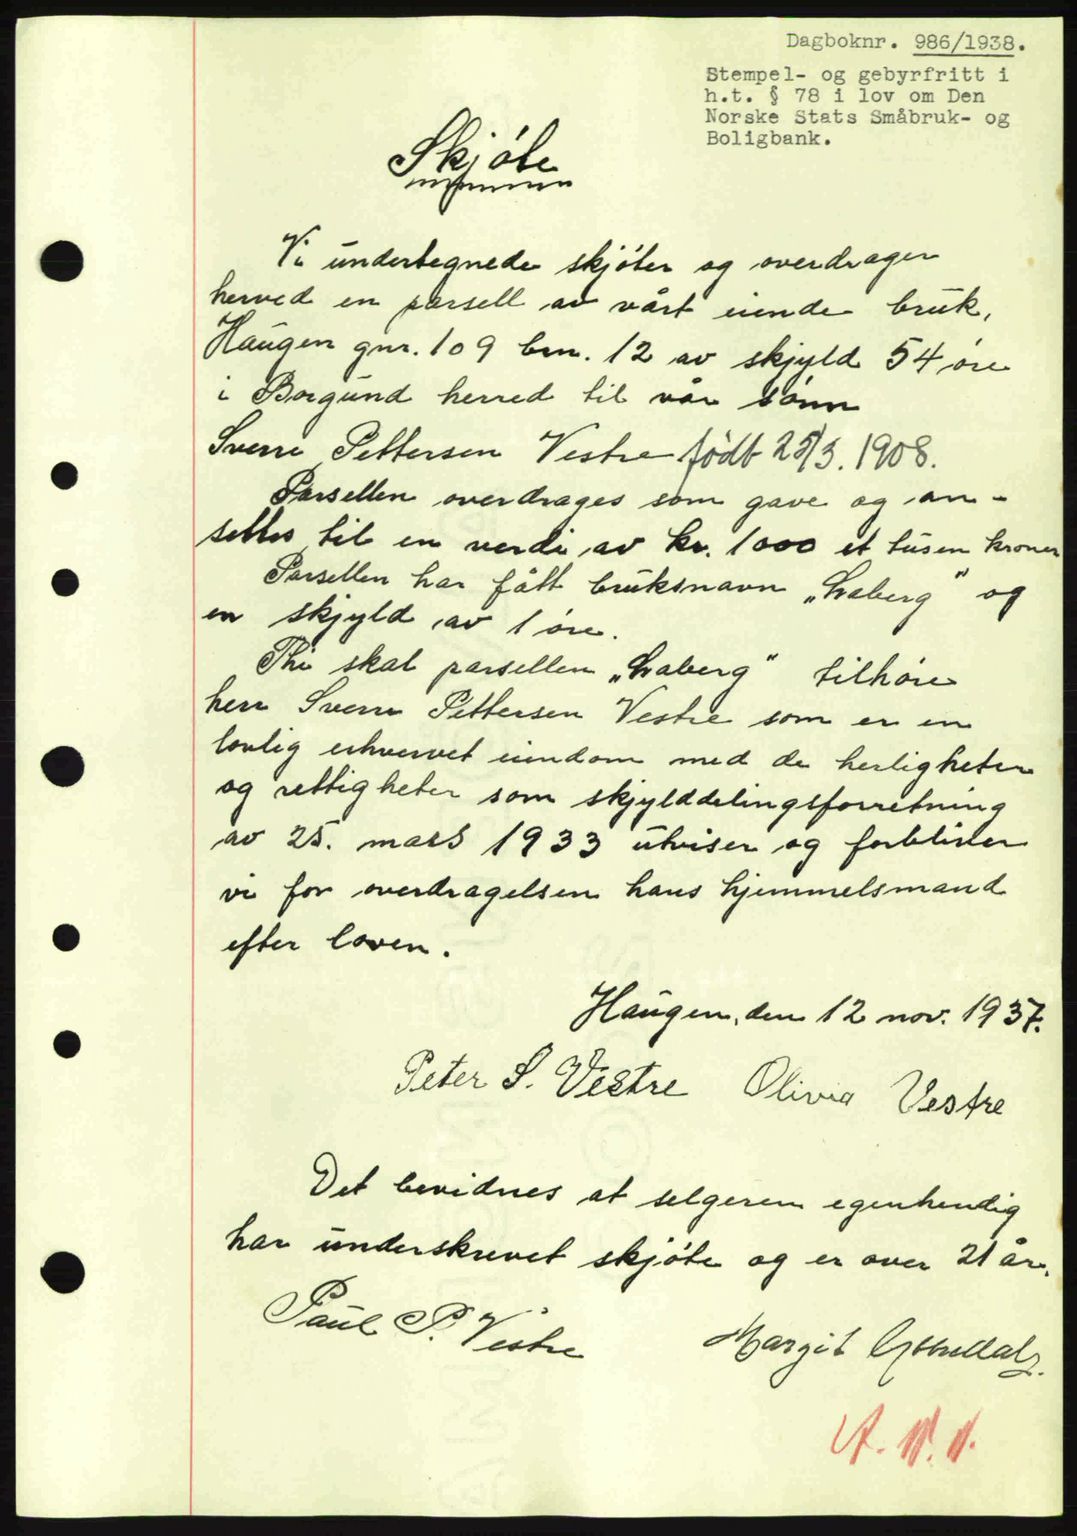 Dagboknr. 986/1938.
Stempel- og gebyrfritt i
h.t. § 78 i lov om Den
Norske Stats Småbruk- og
Boligbank.
Skjøte
Vi undertegnede skjøter og overdrager
herved en parsell av vårt eiende bruk,
Haugen gnr. 109 brn. 12 av skjyld 54 øre
i Borgund herred til vår sønn
Sverre Pettersen Vestre født 25/3. 1908.
Parsellen overdrages som gave og an-
settes til en verdi av kr. 1000 et tusen kroner
Parsellen har fått bruksnavn „Laberg" og
en skjyld av 1 øre.
Thi skal parsellen „Laberg" tilhøre
herr Sverre Pettersen Vestre som er en
lovlig erhvervet eiendom med de herligheter
og rettigheter som skjylddelingsforretning
av 25. mars 1933 utviser og forbliver
vi for overdragelsen hans hjemmelsmand
efter loven.
Haugen, den 12 nov. 1937.
Peter S. Vestre Olivia Vestre
Det bevidnes at selgeren egenhendig
har underskrevet skjøte og er over 21 år.
Paul P. Vestre Margit